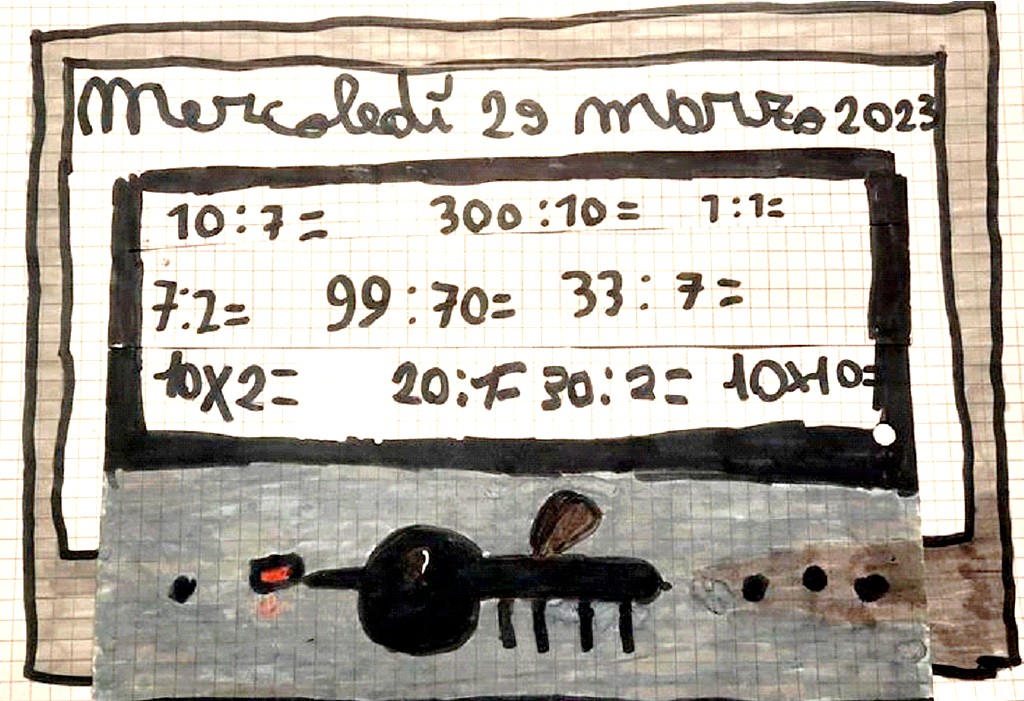 Mercoledí 29 marzo 2023
10:7= 300:10= 1:1=
7:2= 99:70= 33:7=
10x2= 20:1= 30:2= 10x10=